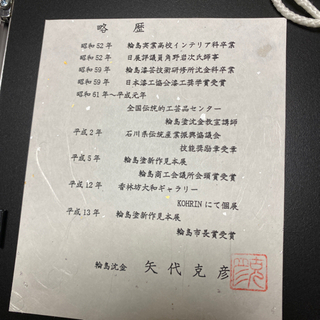 略歴
昭和52年 輪島実業高校インテリア科卒業
昭和52年 日展評議員角野岩次氏師事
昭和59年 輪島漆芸技術研修所沈金科卒業
昭和59年 日本漆工協会漆工奨学賞受賞
昭和61年~平成元年
全国伝統的工芸品センター
輪島塗沈金教室講師
平成2年 石川県伝統産業振興協議会
技能奨励章受章
平成5年 輪島塗新作見本展
輪島商工会議所会頭賞受賞
平成12年 香林坊大和ギャラリー
KOHRINにて個展
平成13年 輪島塗新作見本展
輪島市長賞受賞
輪島沈金 矢代克彦